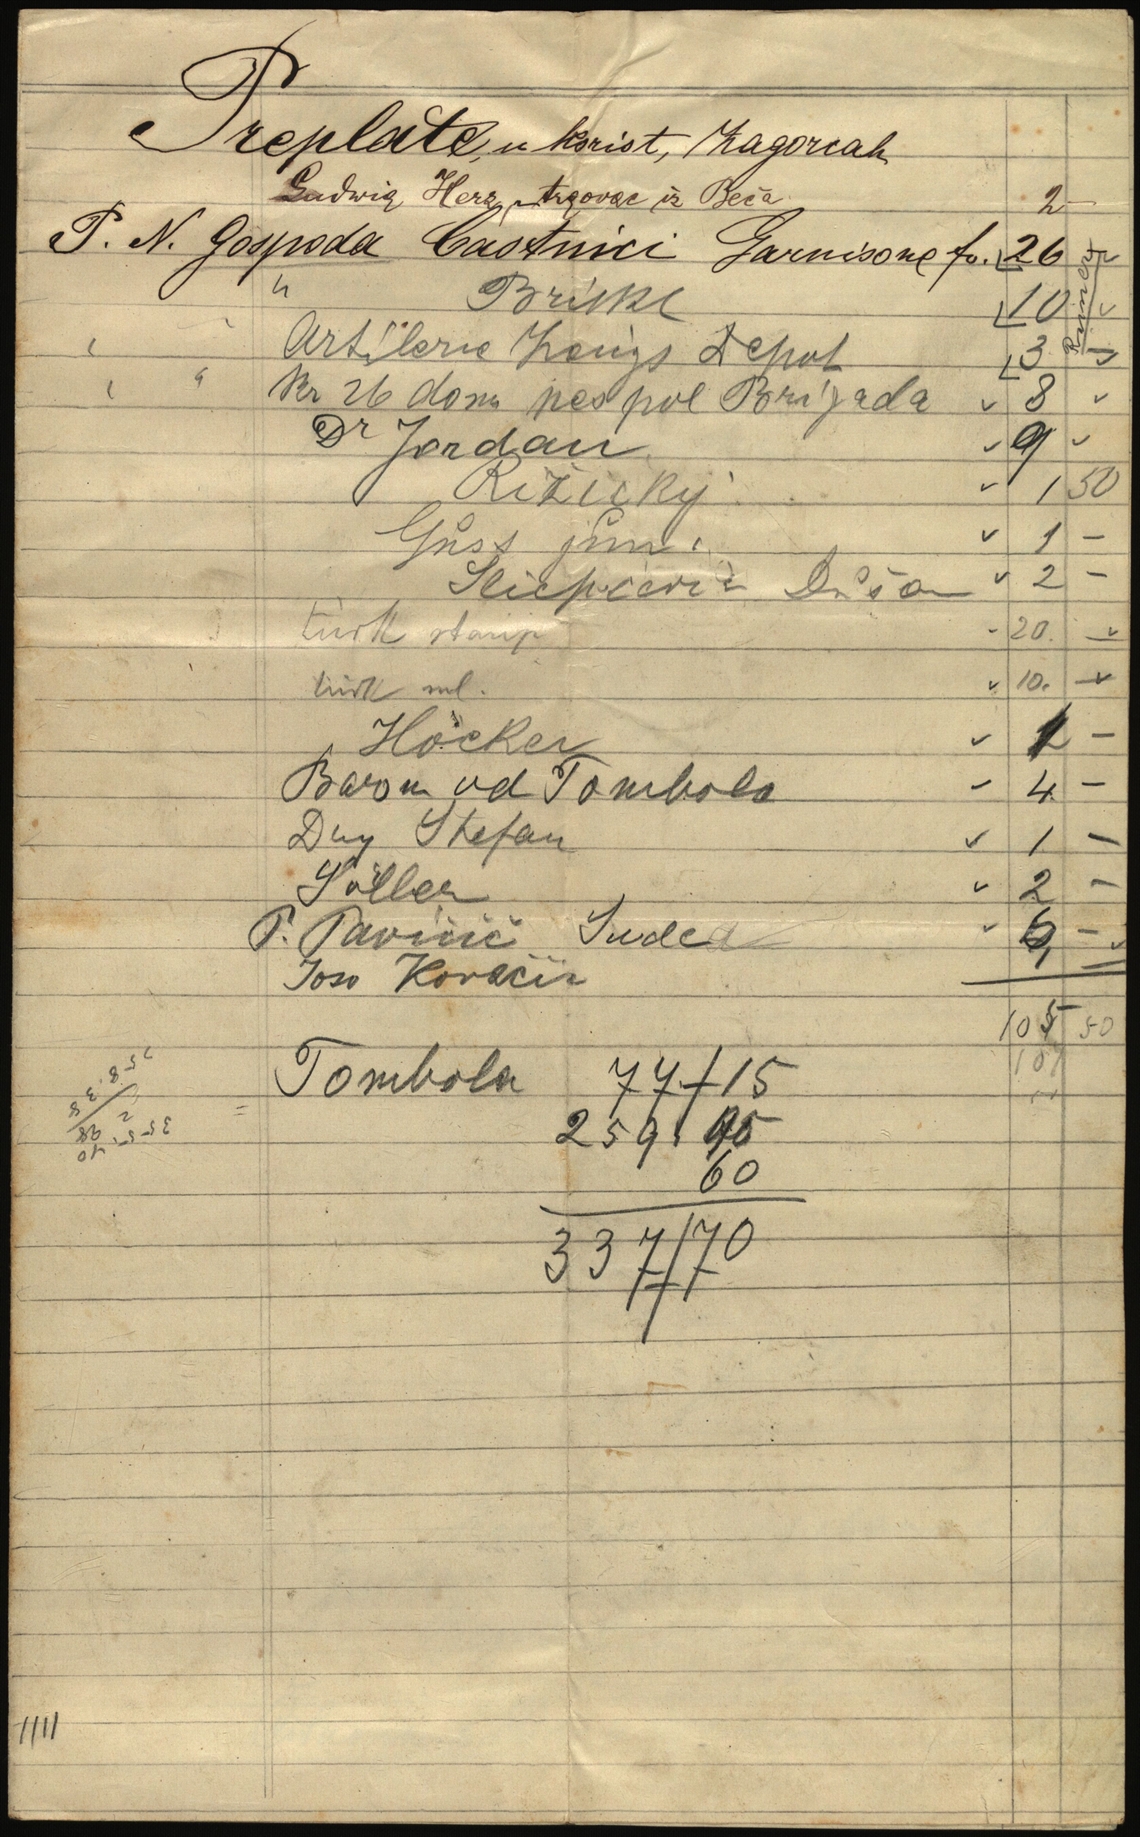 Preplate, u korist, Zagorcah
Ludwig Herz trgovac iz Beča 2 —
P. N. Gospoda Častnici Garnisone fr. 26
" Briekl 10
Artilerie Zeugs Depot 3 —
Kr 26 dom pespol Brigada 8
Dr Jordan 9
Ružicky 1 50
Guss jun. 1 —
Sliepčević Dušan 2 —
türk starip 20. —
türk ml. 10. —
Höcker —
Barom od Tombola 4 —
Duy Stefan 1 —
Söller 2 —
P. Pavičić Sudca —
Joso Kovačić 1
105 50
107
Tombola 77/15
259. 95
60
337/70
1111